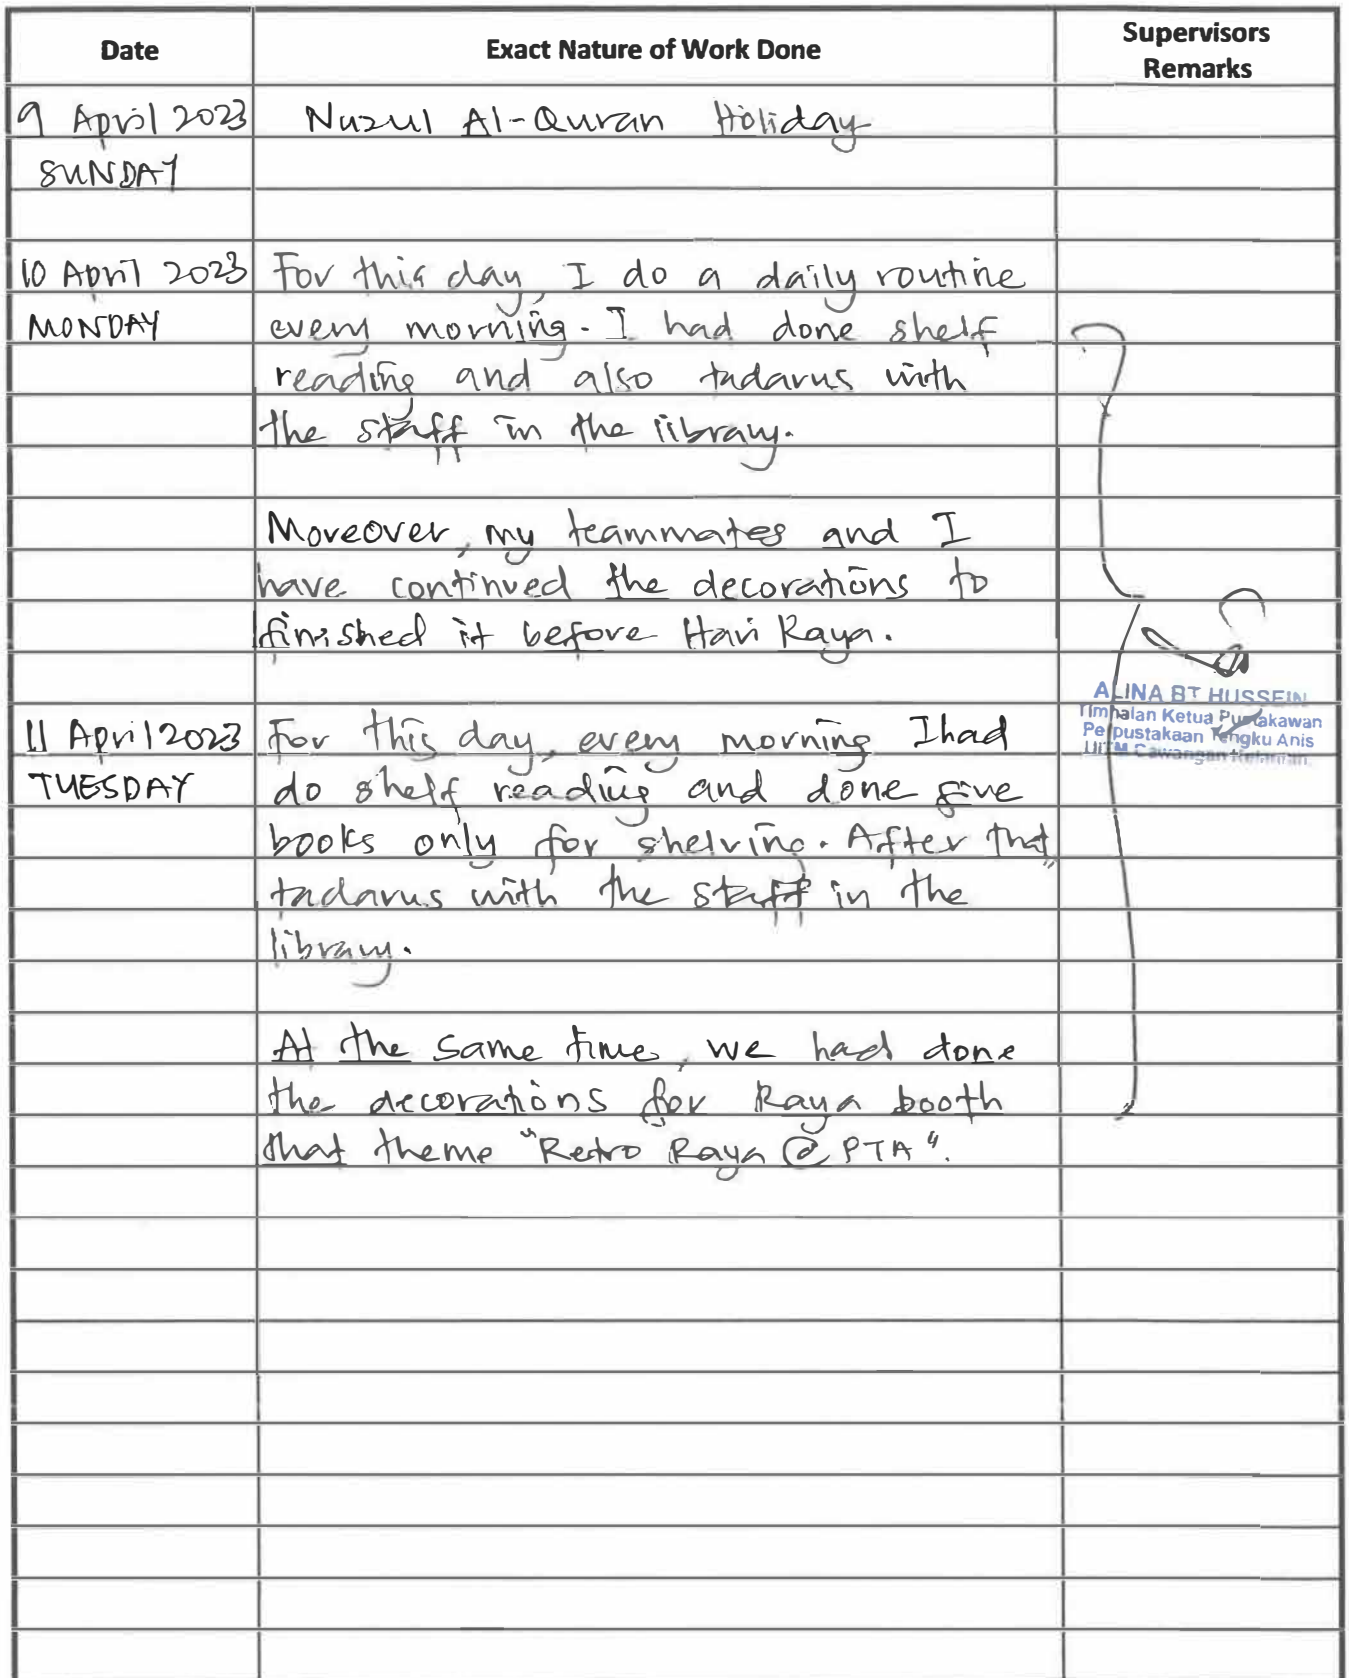 Date Exact Nature of Work Done Supervisors
Remarks
9 April 2023 Nuzul Al-Quran Holiday
SUNDAY
10 April 2023 For this day, I do a daily routine
MONDAY every morning. I had done shelf
reading and also tadarus with
the staff in the library.
Moreover, my teammates and I
have continued the decorations to
finished it before Hari Raya.
ALINA BT HUSSEIN
Timbalan Ketua Pustakawan
Perpustakaan Tengku Anis
UiTM Cawangan Kelantan
11 April 2023 For this day, every morning I had
TUESDAY do shelf reading and done five
books only for shelving. After that,
tadarus with the staff in the
library.
At the same time, we had done
the decorations for Raya booth
that theme "Retro Raya @ PTA".